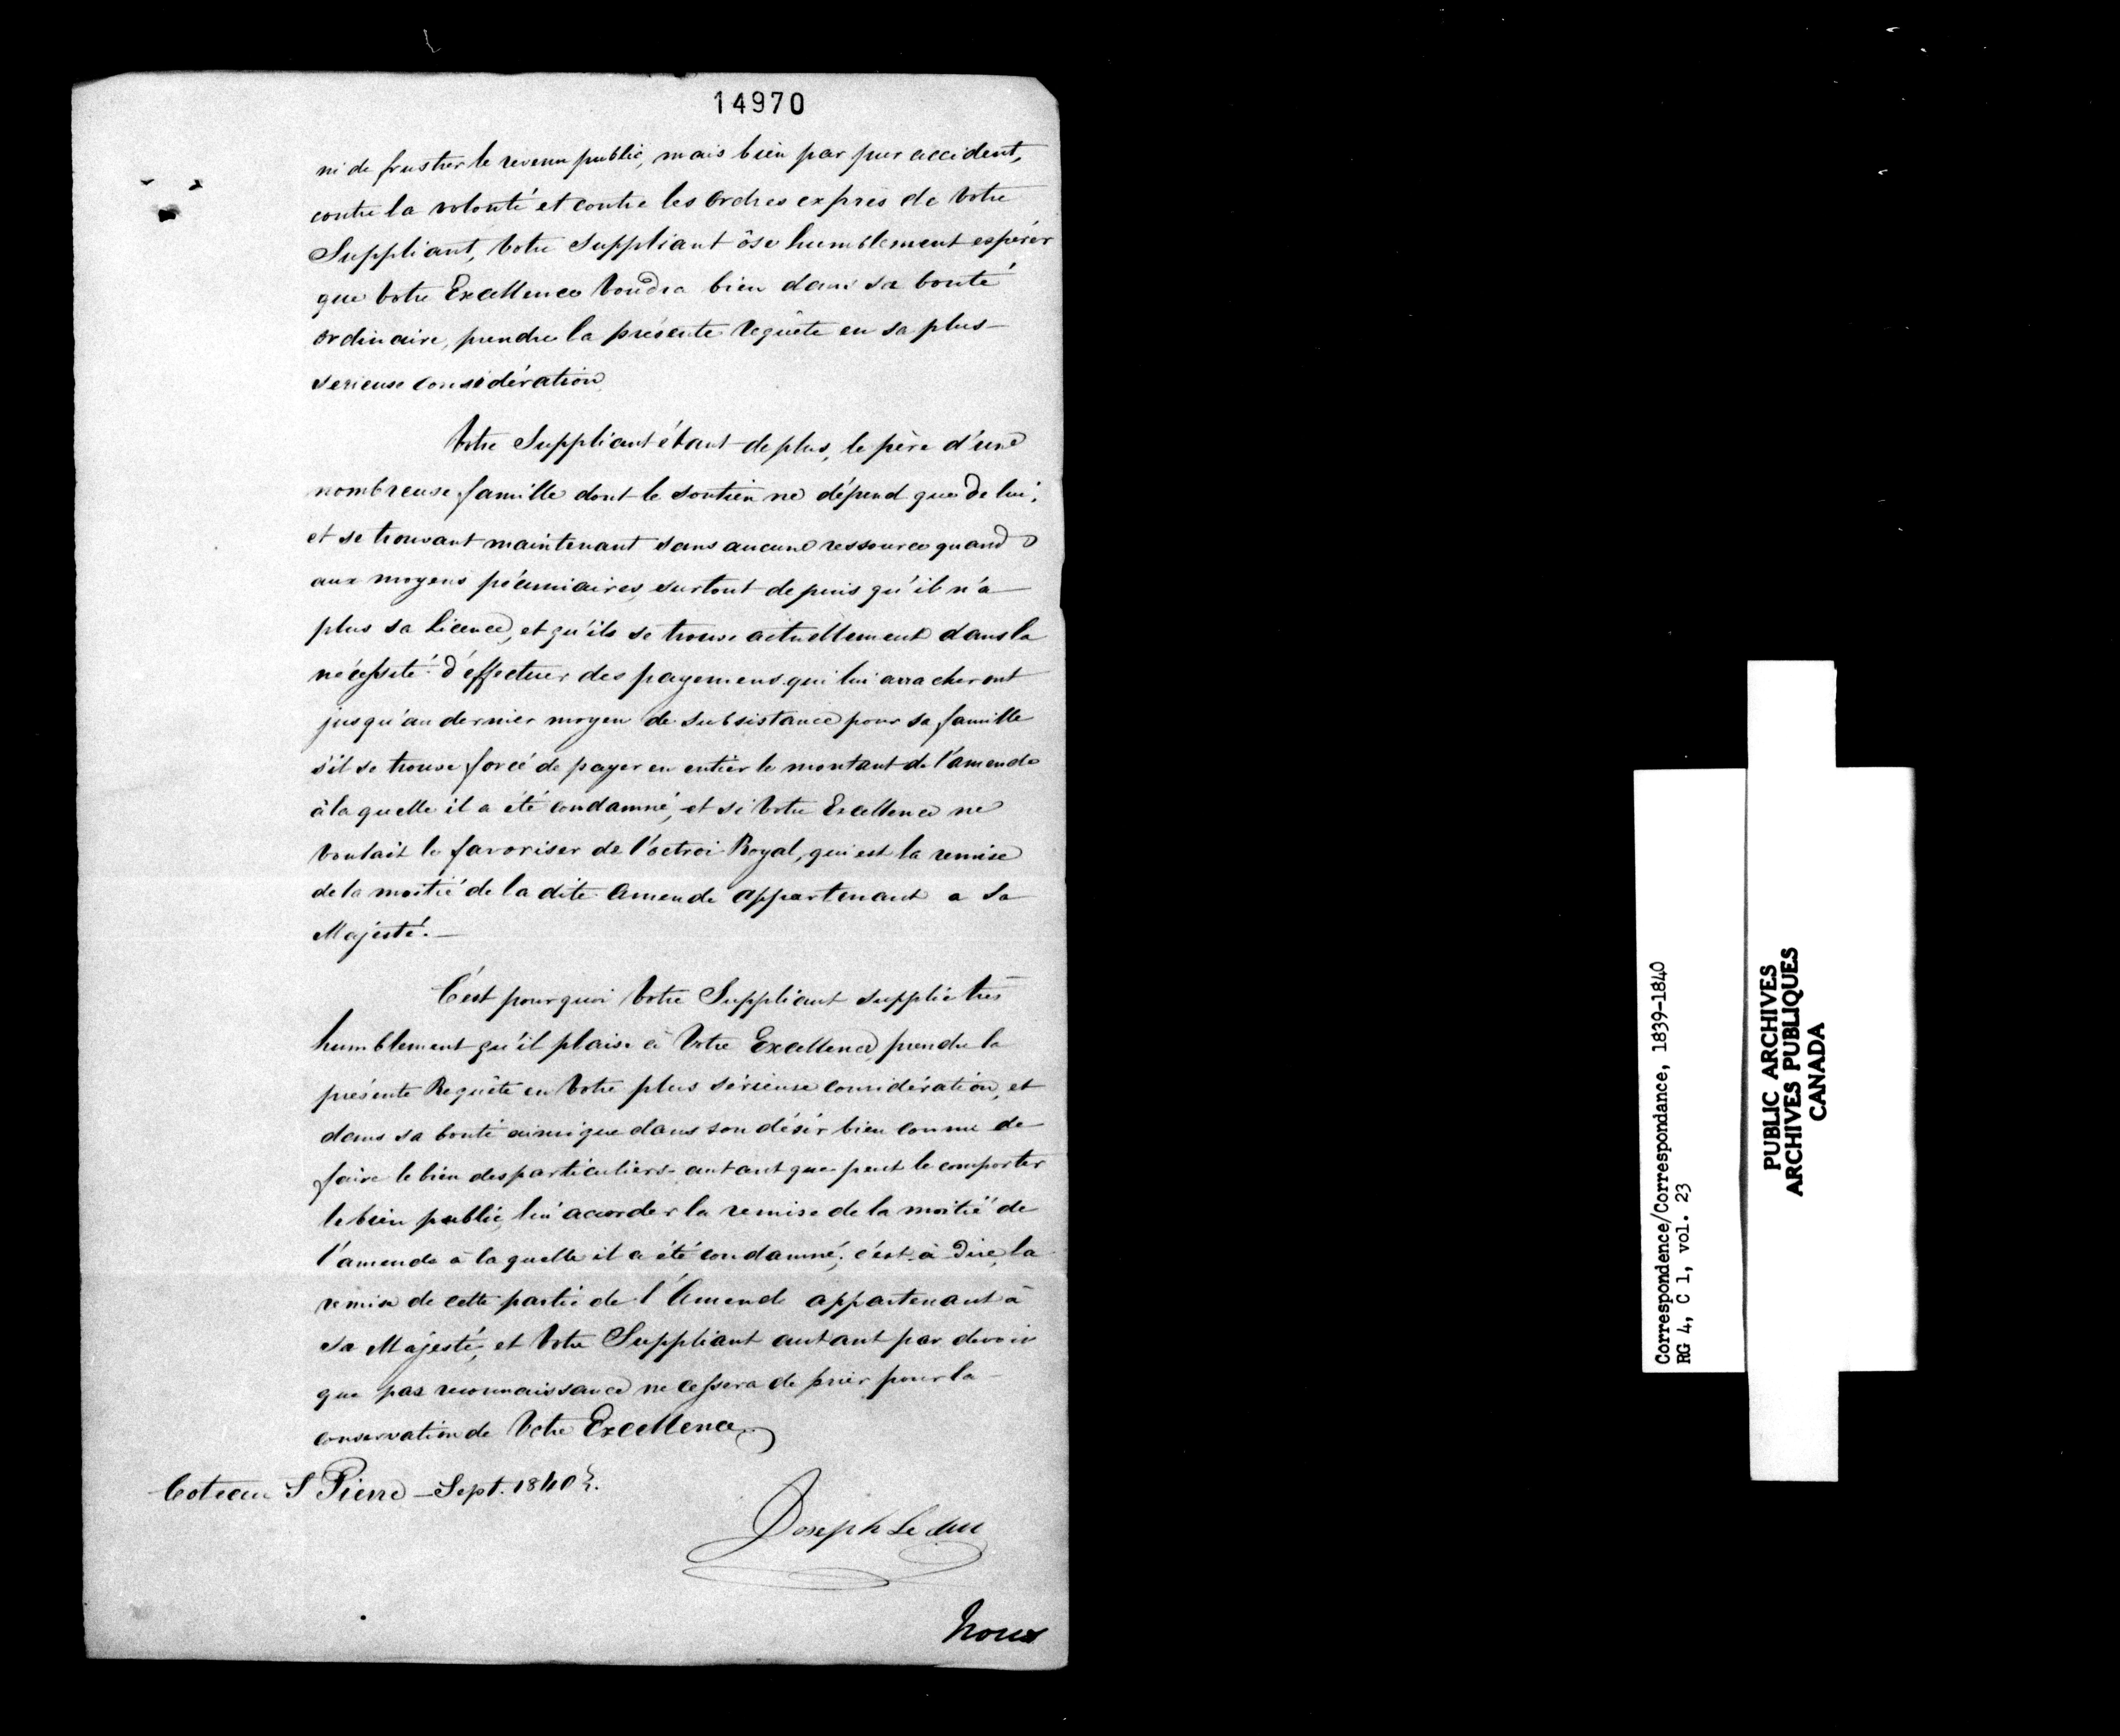 14970
ni de frustrer le revenu public, mais bien par pur accident,
contre la volonté et contre les Ordres exprès de Votre
Suppliant, Votre Suppliant ôse humblement espérer
que Votre Excellence Voudra bien dans sa bonté
ordinaire, prendre la présente Requête en sa plus
serieuse considération
Votre Suppliant étant de plus, le père d'une
nombreuse famille dont le soutien ne dépend que de lui,
et se trouvant maintenant sans aucune ressource quand
aux moyens pécuniaires, surtout depuis qu'il n'a
plus sa Licence, et qu'ils se trouve actuellement dans la
nécessité d'effectuer des payemens qui lui arracheront
jusqu'au dernier moyen de subsistance pour sa famille
s'il se trouve forcé de payer en entier le montant de l'amende
à laquelle il a été condamné, et si Votre Excellence ne
voulait le favoriser de l'octroi Royal, qui est la remise
de la moitié de la dite Amende appartenant a Sa
Majesté. —
C'est pourquoi Votre Suppliant supplie très
humblement qu'il plaise à Votre Excellence, prendre la
présente Requête en Votre plus sérieuse considération, et
dans sa bonté ainsi que dans son désir bien connu de
faire le bien des particuliers autant que peut le comporter
le bien public, lui accorder la remise de la moitié de
l'amende à laquelle il a été condamné; c'est à dire, la
remise de cette partie de l'Amende appartenant à
sa Majesté, et Votre Suppliant autant par devoir
que par reconnaissance ne cessera de prier pour la
conservation de Votre Excellence
Coteau St Pierre — Sept. 1840.
Joseph Leduc
Nous
Correspondence/Correspondance, 1839-1840
RG 4, C 1, vol. 23
PUBLIC ARCHIVES
ARCHIVES PUBLIQUES
CANADA